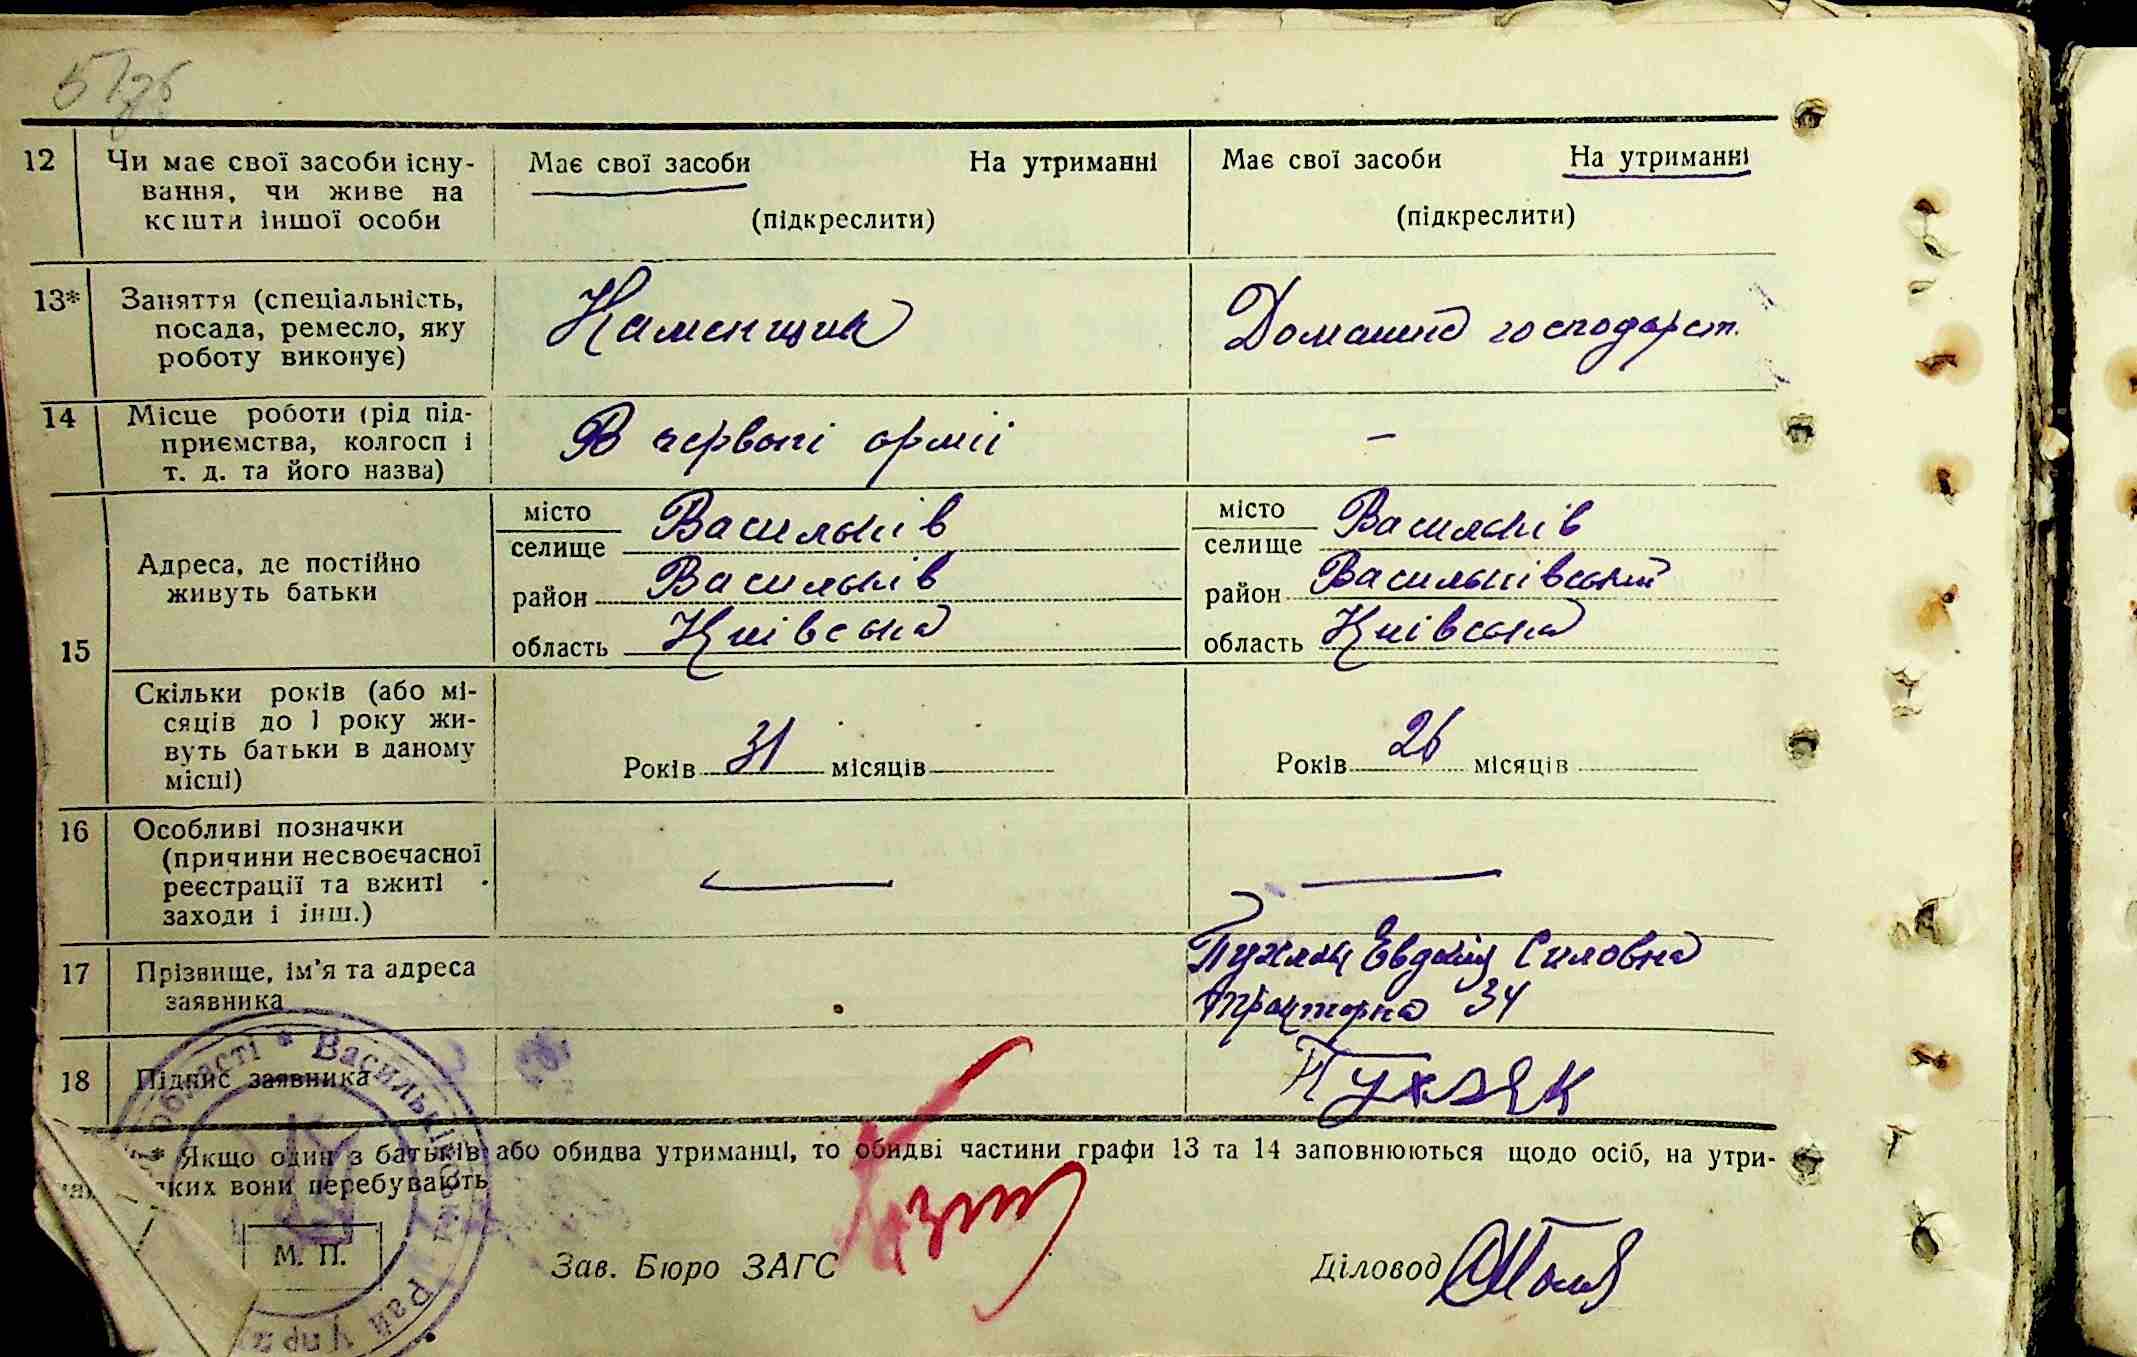 12 Чи має свої засоби існу-
вання, чи живе на
кошти іншої особи
Має свої засоби На утриманні
(підкреслити)
Має свої засоби На утриманні
(підкреслити)
13* Заняття (спеціальність,
посада, ремесло, яку
роботу виконує)
Каменщик
Домашнє господарст.
14 Місце роботи (рід під-
приємства, колгосп і
т. д. та його назва)
В червоні армії
–
15 Адреса, де постійно
живуть батьки
місто
селище Васильків
район Васильків
область Київська
місто
селище Васильків
район Васильківський
область Київська
Скільки років (або мі-
сяців до 1 року жи-
вуть батьки в даному
місці)
Років 31 місяців
Років 26 місяців
16 Особливі позначки
(причини несвоєчасної
реєстрації та вжиті
заходи і інш.)
17 Прізвище, ім'я та адреса
заявника
Пухляк Евдокия Силовна
Тракторна 34
18 Підпис заявника
Пухляк
* Якщо один з батьків або обидва утриманці, то обидві частини графи 13 та 14 заповнюються щодо осіб, на утри-
яких вони перебувають
М. П.
Зав. Бюро ЗАГС
Діловод
області * Васильківськ Рай Упра